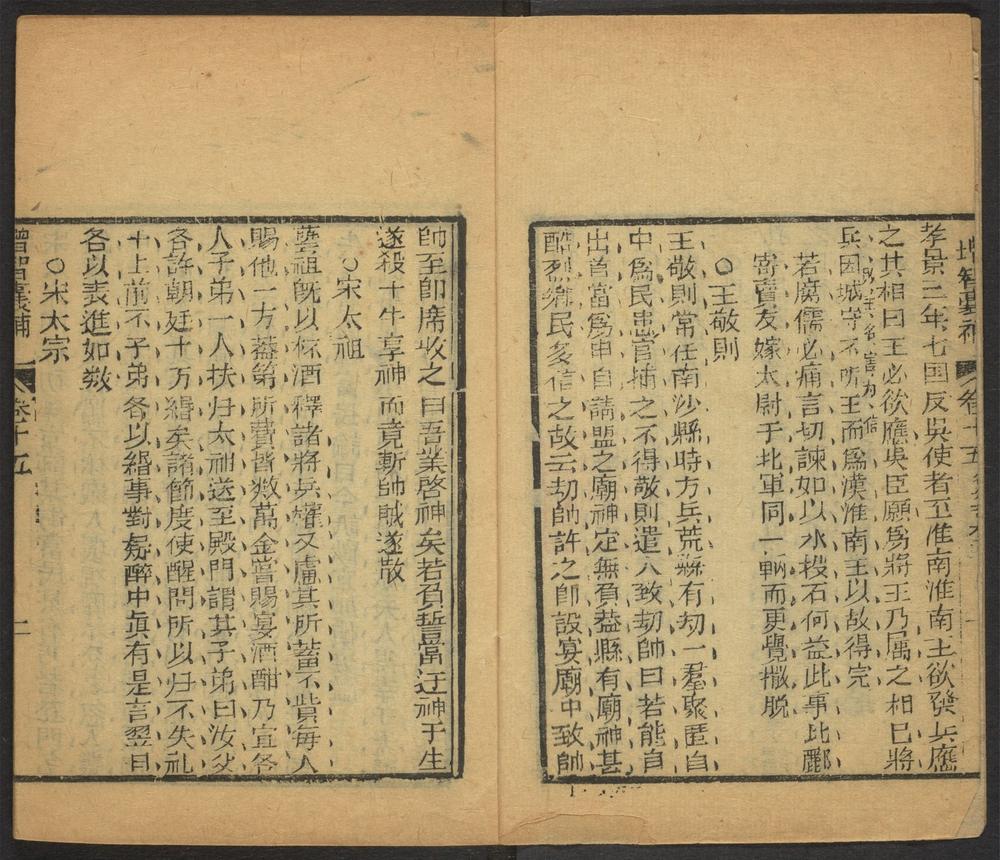 增智囊補 卷十五
孝景二年七国反吳使者至淮南淮南王欲發兵應
之其相曰王必欲應吳臣願爲將王乃属之相已將
兵因城守不听王而爲漢淮南王以故得完
若腐儒必痛言切諫如以水投石何益此事比酈
寄賣友嫁太尉于北軍同一軸而更覺撒脱
○王敬則
王敬則常任南沙縣時方兵荒縣有刼一羣聚匿自
中爲民患官捕之不得敬則遣人致刼帥曰若能自
出首當爲申白請盟之廟神定無負盖縣有廟神甚
酷烈鄉民多信之故云刼帥許之即設宴廟中致帥
帥至即席收之曰吾業啓神矣若負誓當迋神于生
遂殺十牛享神而竟斬帥賊遂散
○宋太祖
藝祖旣以杯酒釋諸將兵權又慮其所蓄不貲每人
賜他一方盖第所費皆数萬金嘗賜宴酒酣乃宣各
人子弟一人扶归太祖送至殿門謂其子弟曰汝父
各許朝廷十万緡矣諸節度使醒問所以归不失礼
于上前不子弟各以緡事對疑醉中真有是言翌日
各以表進如数
○宋太宗
增智囊補 卷十五 二